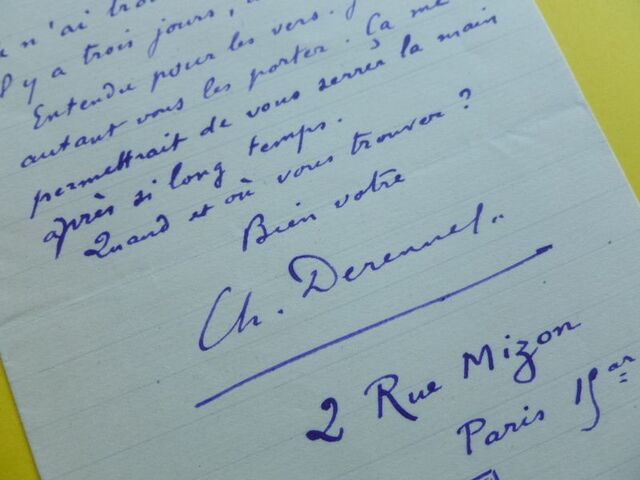 n'ai
y a trois jours,
Entendu pour les vers.
autant vous les porter. Ça me
permettrait de vous serrer la main
après si long temps.
Quand et où vous trouver ?
Bien votre
Ch. Derennes.
2 Rue Mizon
Paris 15ar